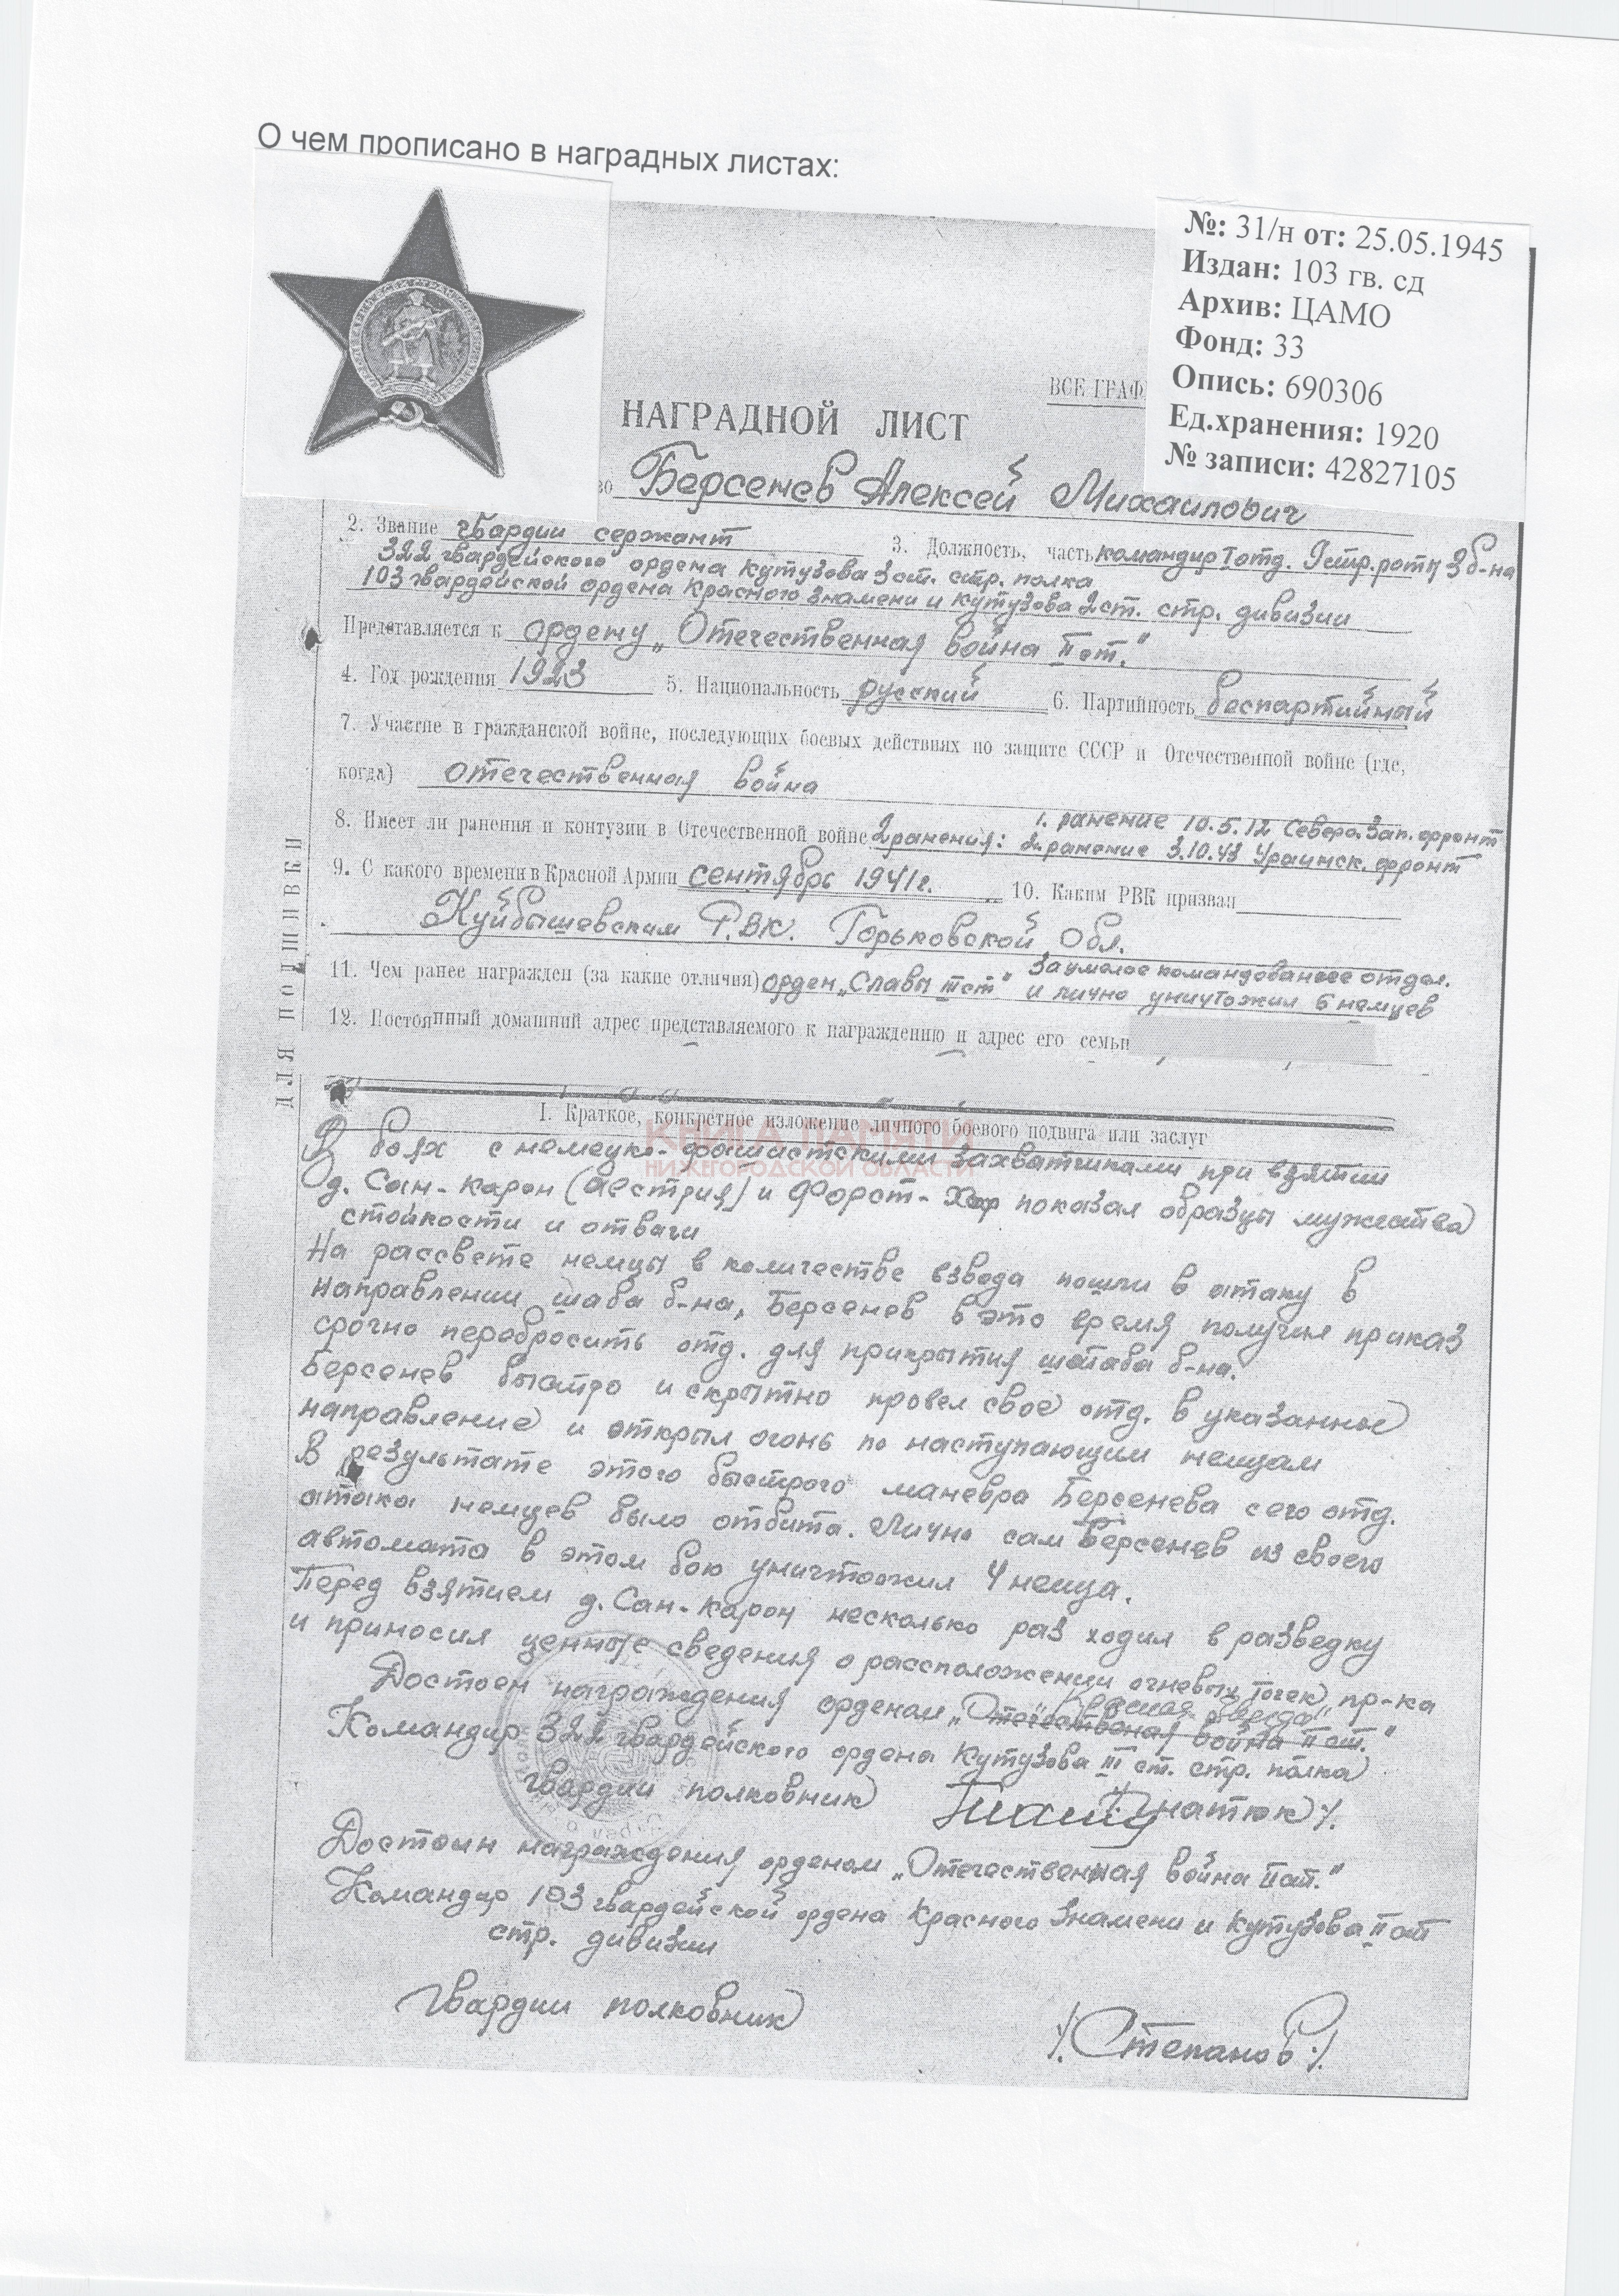 О чем прописано в наградных листах:
№: 31/н от: 25.05.1945
Издан: 103 гв. сд
Архив: ЦАМО
Фонд: 33
Опись: 690306
Ед.хранения: 1920
№ записи: 42827105
ВСЕ ГРАФ
НАГРАДНОЙ ЛИСТ
Берсенев Алексей Михаилович
2. Звание гвардии сержант 3. Должность, часть командир отд. стр. роты 3 б-на
322 гвардейского ордена Кутузова 3 ст. стр. полка
103 гвардейской ордена Красного Знамени и Кутузова 2 ст. стр. дивизии
Представляется к ордену „Отечественная война II ст."
4. Год рождения 1923 5. Национальность русский 6. Партийность беспартийный
7. Участие в гражданской войне, последующих боевых действиях по защите СССР и Отечественной войне (где,
когда) отечественная война
8. Имеет ли ранения и контузии в Отечественной войне 2 ранения: 1. ранение 10.5.12 Северо. Зап. фронт
2. ранение 3.10.43 фронт
9. С какого времени в Красной Армии сентябрь 1941 г. 10. Каким РВК призван
Куйбышевским Р.ВК. Горьковской Обл.
11. Чем ранее награжден (за какие отличия) орден „Славы III ст" за умелое командование отдел.
и лично уничтожил 6 немцев
12. Постоянный домашний адрес представляемого к награждению и адрес его семьи
ДЛЯ ПОДШИВКИ
I. Краткое, конкретное изложение личного боевого подвига или заслуг
КНИГА ПАМЯТИ
НИЖЕГОРОДСКОЙ ОБЛАСТИ
В боях с немецко-фашистскими захватчиками при взятии
д. Сан-Карон (Австрия) и Форст-Хоф показал образцы мужества
стойкости и отваги
На рассвете немцы в количестве взвода пошли в атаку в
направлении штаба б-на, Берсенев в это время получил приказ
срочно перебросить отд. для прикрытия штаба б-на.
Берсенев быстро и скрытно провел свое отд. в указанное
направление и открыл огонь по наступающим немцам
В результате этого быстрого маневра Берсенева с его отд.
атака немцев было отбита. Лично сам Берсенев из своего
автомата в этом бою уничтожил 4 немца.
Перед взятием д. Сан-Карон несколько раз ходил в разведку
и приносил ценные сведения о рассположении огневых точек пр-ка
Достоен награждения орденом „Отечественная война II ст." „Красная Звезда"
Командир 322 гвардейского ордена Кутузова III ст. стр. полка
гвардии полковник /. Гнатюк /.
Достоин награждения орденом „Отечественная война II ст."
Командир 103 гвардейской ордена Красного Знамени и Кутузова II ст
стр. дивизии
Гвардии полковник /. Степанов /.